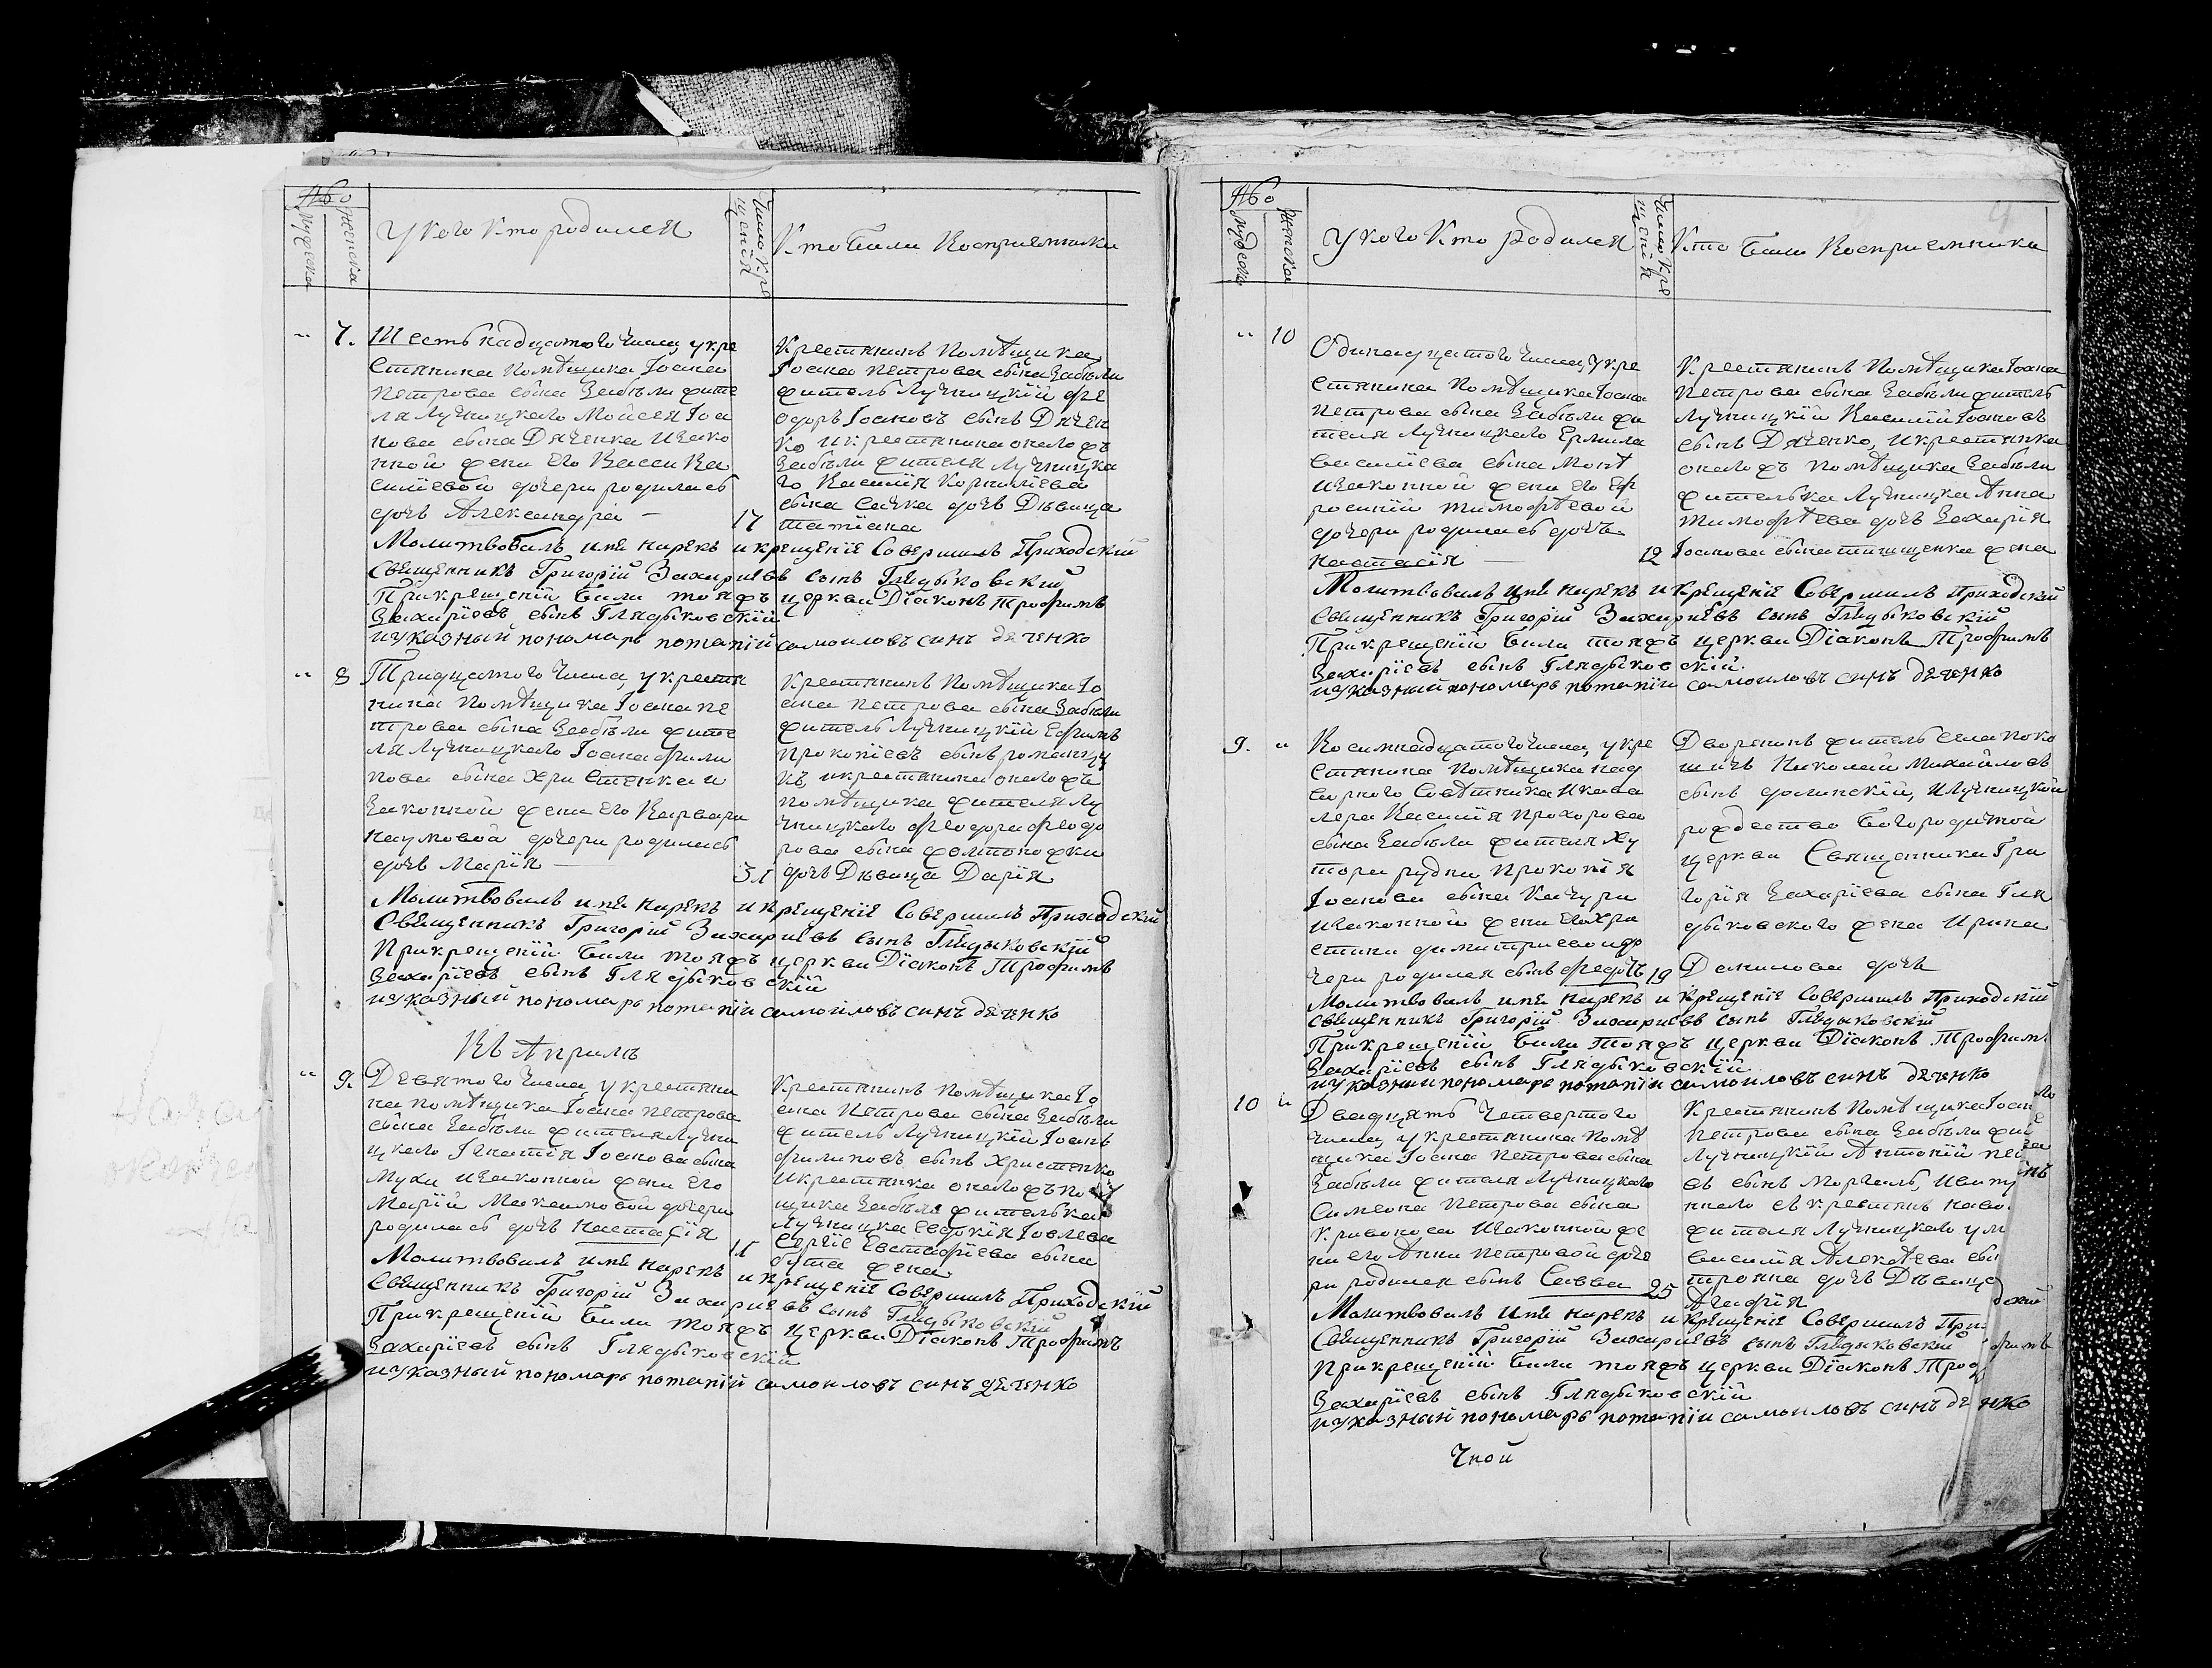 №
Мужеска
Женска
У кого кто родился
Число кре
щенія
Кто были восприемники
" 7. Шестьнадцатого числа, укре
стянина помѣщика Іоана
Петрова сына Забѣлы жите
ля Лучницкого Мойсея Іоа
нова сына Дяченка изако
нной жены его Васси Ва
силіевой дочери родилась
дочь Александріа — 17
Крестянинъ помѣщика
Іоана Петрова сына Забѣлы
житель Лучницкій Фе
одоръ Іоановъ сынъ Дячен
ко икрестянина оногожъ
Забѣлы жителя Лучницка
го Василія Корнилиева
сына дочь Дѣвица
татіана
Молитвовалъ имя нарекъ и крещеніе Совершилъ Приходскій
Священникъ Григорій Захаріевъ сынъ Глядыковскій
При крещеніи были тояжъ церкви Діаконъ Трофимъ
Захаріевъ сынъ Глядыковскій
иуказный пономарь потапій самоиловъ синъ дяченко
" 8 Тридцатого числа, у крестя
нина помѣщика Іоана пе
трова сына Забѣлы жите
ля Лучницкого Іоана Фили
пова сына Христенка и
законной жены его Варвары
Наумовой дочери родилась
дочь Марія — 31
Крестянинъ помѣщика Іо
ана Петрова сына Забѣлы
житель Лучницкій Ефимъ
Прокопіевъ сынъ
икрестянина оногожъ
помѣщика жителя Лу
чницкого Феодора Феодо
рова сына желтоножки
дочь Дѣвица Дарія
Молитвовалъ имя нарекъ и крещеніе Совершилъ Приходскій
Священникъ Григорій Захаріевъ сынъ Глядыковскій
При крещеніи были тояжъ церкви Діаконъ Трофимъ
Захаріевъ сынъ Глядыковскій
иуказный пономарь потапій самоиловъ синъ дяченко
Въ Априлѣ
" 9. Девятого числа у крестяни
на помѣщика Іоана Петрова
сына Забѣлы жителя Лучни
цкого Игнатія Іоанова сына
Мухи изаконной жены его
Маріи Максимовой дочери
родилась дочь Настасія
Крестянинъ помѣщика Іо
ана Петрова сына Забѣлы
житель Лучницкій Іоанъ
Филиповъ сынъ Христенко
икрестянка оногожъ по
щика Забѣлы жителька
Лучницка Евдокія Іовлева
Сергіе Евстафіева сына
жена
Молитвовалъ имя нарекъ и крещеніе Совершилъ Приходскій
Священникъ Григорій Захаріевъ сынъ Глядыковскій
При крещеніи были тояжъ церкви Діаконъ Трофимъ
Захаріевъ сынъ Глядыковскій
иуказный пономарь потапій самоиловъ синъ дяченко
№
Мужеска
Женска
У кого кто родился
Число кре
щенія
Кто были восприемники
" 10
Одинадцатого числа, у кре
стянина помѣщика Іоана
Петрова сына Забѣлы жи
теля Лучницкого Ермила
Василіева сына
изаконной жены его Еф
росиніи Тимофѣевой
дочери родилась дочь
Настасія — 12
Крестянинъ помѣщика Іоана
Петрова сына Забѣлы житель
Лучницкій Василій Іоановъ
сынъ Дяченко, икрестянка
оногожъ помѣщика Забѣлы
жителька Лучницка Анна
Тимофѣева дочь Захарія
Іоанова сына жена
Молитвовалъ имя нарекъ и крещеніе Совершилъ Приходскій
Священникъ Григорій Захаріевъ сынъ Глядыковскій
При крещеніи были тояжъ церкви Діаконъ Трофимъ
Захаріевъ сынъ Глядыковскій.
иуказный пономарь потапіи самоиловъ синъ дяченко
9. " Восимнадцатого числа, у кре
стянина помѣщика над
ворного Совѣтника и кава
лера Василія Прохорова
сына Забѣлы жителя Ху
тора рудни Прокопія
Іоанова сына Качуры
изаконной жены его Хри
стини димитриевои до
чери родился сынъ Федотъ 19
Дворенинъ житель села поко
шичъ Николай Михайловъ
сынъ долинскій, и Лучницкой
рождество Богородичной
церкви Священника Гри
горія Захаріева сына Гля
дыковского жена Ирина
Данилова дочь
Молитвовалъ имя нарекъ и крещеніе Совершилъ Приходскій
Священникъ Григорій Захаріевъ сынъ Глядыковскій
При крещеніи были тояжъ церкви Діаконъ Трофимъ
Захаріевъ сынъ Глядыковскій
иуказный пономарь потапіи самоиловъ синъ дяченко
10 " Двадцять Четвертого
числа, у крестянина помѣ
щика Іоана Петрова сына
Забѣлы жителя Лучницкого
Симеона Петрова сына
Кривоноса изаконной же
ны его Анны Петровой доче
ри родился сынъ Савва 25
Крестянинъ помѣщика Іоан
Петрова сына Забѣлы жи
Лучницкій Антоній
въ сынъ
жителя Лучницкого
Василія Алексѣева сы
дочь Дѣвица
Агафія
Молитвовалъ имя нарекъ и крещеніе Совершилъ При
Священникъ Григорій Захаріевъ сынъ Глядыковскій
При крещеніи были тояжъ церкви Діаконъ Троф
Захаріевъ сынъ Глядыковскій
иуказный пономарь потапіи самоиловъ синъ дяченко
Чной